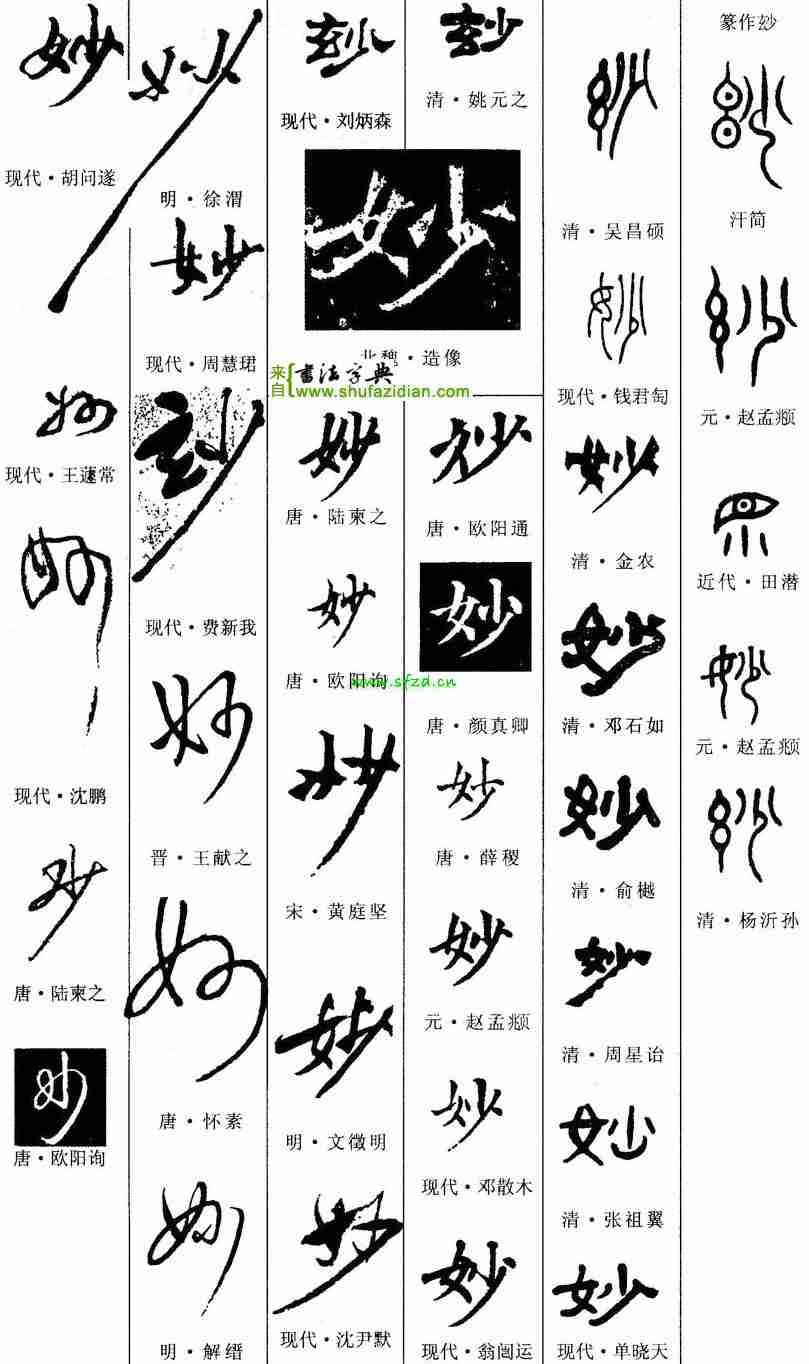 篆作玅
玅
汗简
玅
元·赵孟頫
近代·田潜
妙
元·赵孟頫
玅
清·杨沂孙
玅
清·吴昌硕
妙
现代·钱君匋
妙
清·金农
妙
清·邓石如
妙
清·俞樾
妙
清·周星诒
妙
清·张祖翼
妙
现代·单晓天
玅
清·姚元之
玅
现代·刘炳森
妙
北魏·造像
来自
书法字典
www.shufazidian.com
妙
唐·欧阳通
妙
唐·颜真卿
妙
唐·薛稷
妙
元·赵孟頫
妙
现代·邓散木
妙
现代·翁闿运
妙
唐·陆柬之
妙
唐·欧阳询
www.sfzd.cn
妙
宋·黄庭坚
妙
明·文徵明
妙
现代·沈尹默
妙
明·徐渭
妙
现代·周慧珺
玅
现代·费新我
妙
晋·王献之
妙
唐·怀素
妙
明·解缙
妙
现代·胡问遂
妙
现代·王蘧常
妙
现代·沈鹏
妙
唐·陆柬之
妙
唐·欧阳询